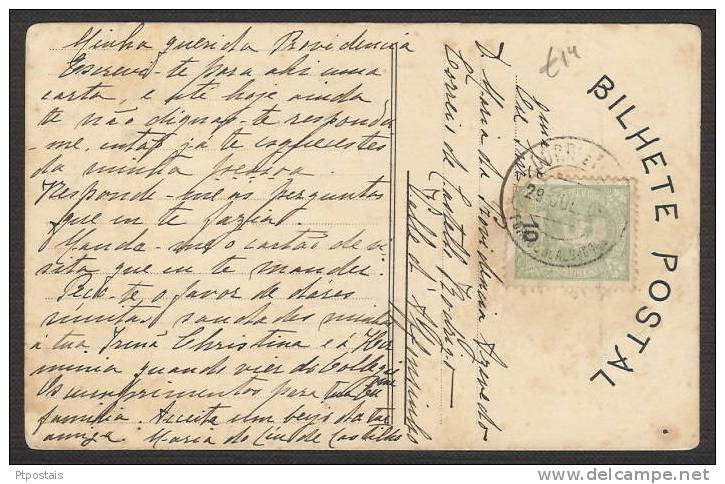 Minha querida Providencia
Escrevi-te para ahi uma
carta, e até hoje ainda
te não dignaste responder
me, então já te esqueceste
da minha pessoa.
Responde-me ás perguntas
que eu te fazia
Manda-me o cartão de vi
sita que eu te mandei.
Peço-te o favor de dares
muitas saudades minhas
á tua Irmã Christina e á Her
minia quando vier do Collegio
Os cumprimentos para tua Exma
familia. Aceita um beijo da tua
amiga. Maria do Céu de Castilho
D. Maria da Providencia Azevedo
Correio de Castello Rodrigo
Valle d'Affonsinho
BILHETE POSTAL
€14
29 JUL
10
Ptpostais
www.delcampe.net